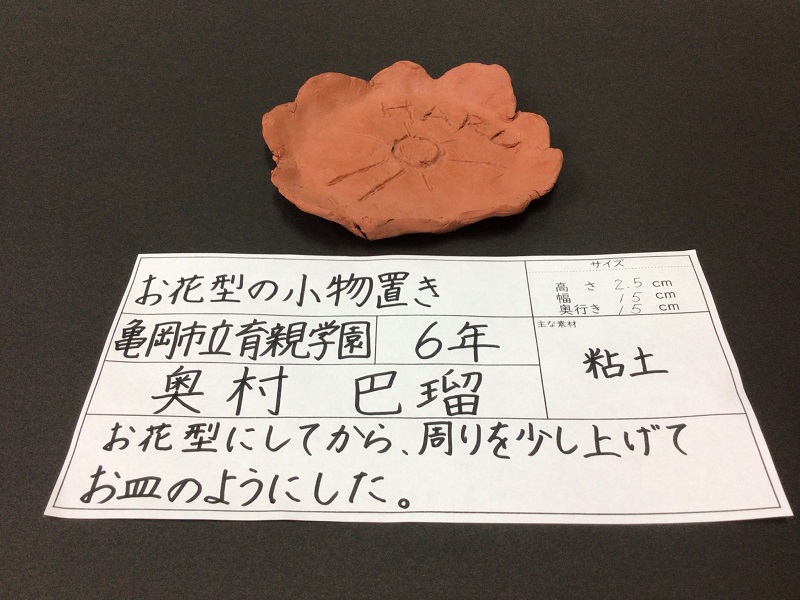 HARU
お花型の小物置き
サイズ
高さ 2.5 cm
幅 15 cm
奥行き 15 cm
亀岡市立育親学園
6年
主な素材
粘土
奥村 巴瑠
お花型にしてから、周りを少し上げて
お皿のようにした。